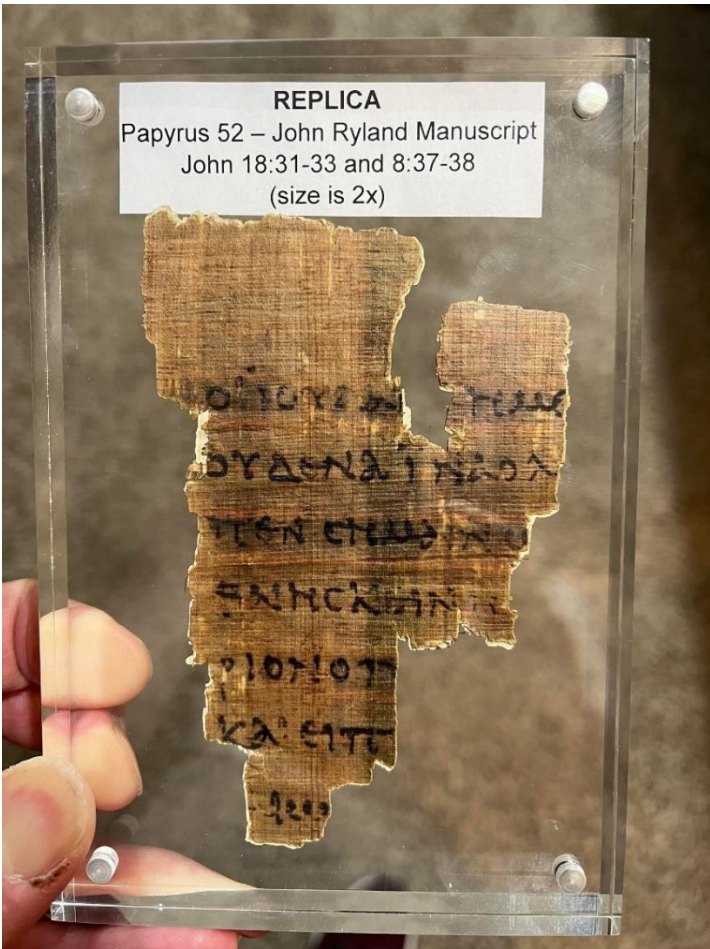 REPLICA
Papyrus 52 – John Ryland Manuscript
John 18:31-33 and 8:37-38
(size is 2x)
ΟΙ ΙΟΥΔΑΙ ΗΜΕ
ΟΥΔΕΝΑ ΙΝΑ Ο Λ
ΠΕΝ CΗΜΑΙΝΩ
ΘΝΗCΚΕΙΝ
ΡΙΟΝ Ο Π
ΚΑΙ ΕΙΠ